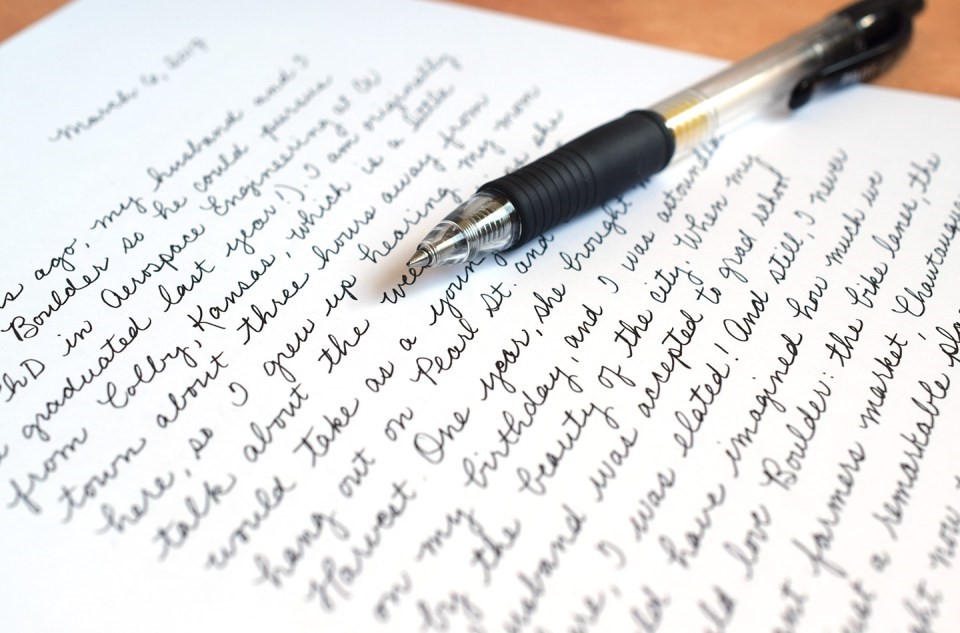 March 6, 2017
s ago, my husband and I
Boulder so he could pursue
PhD in Aerospace Engineering at
graduated last year!). I am originally
from Colby, Kansas, which is a little
town about three hours away from
here, so I grew up hearing my mom
talk about the she
would take as a young
hang out on Pearl St. and
Harvest. One year, she brought
on my birthday, and I was
by the beauty of the city. When my
husband was accepted to grad school
I was elated! And still, I never
have imagined how much we
love Boulder: the bike lanes, the
farmers market, Chautauqua
a remarkable
now